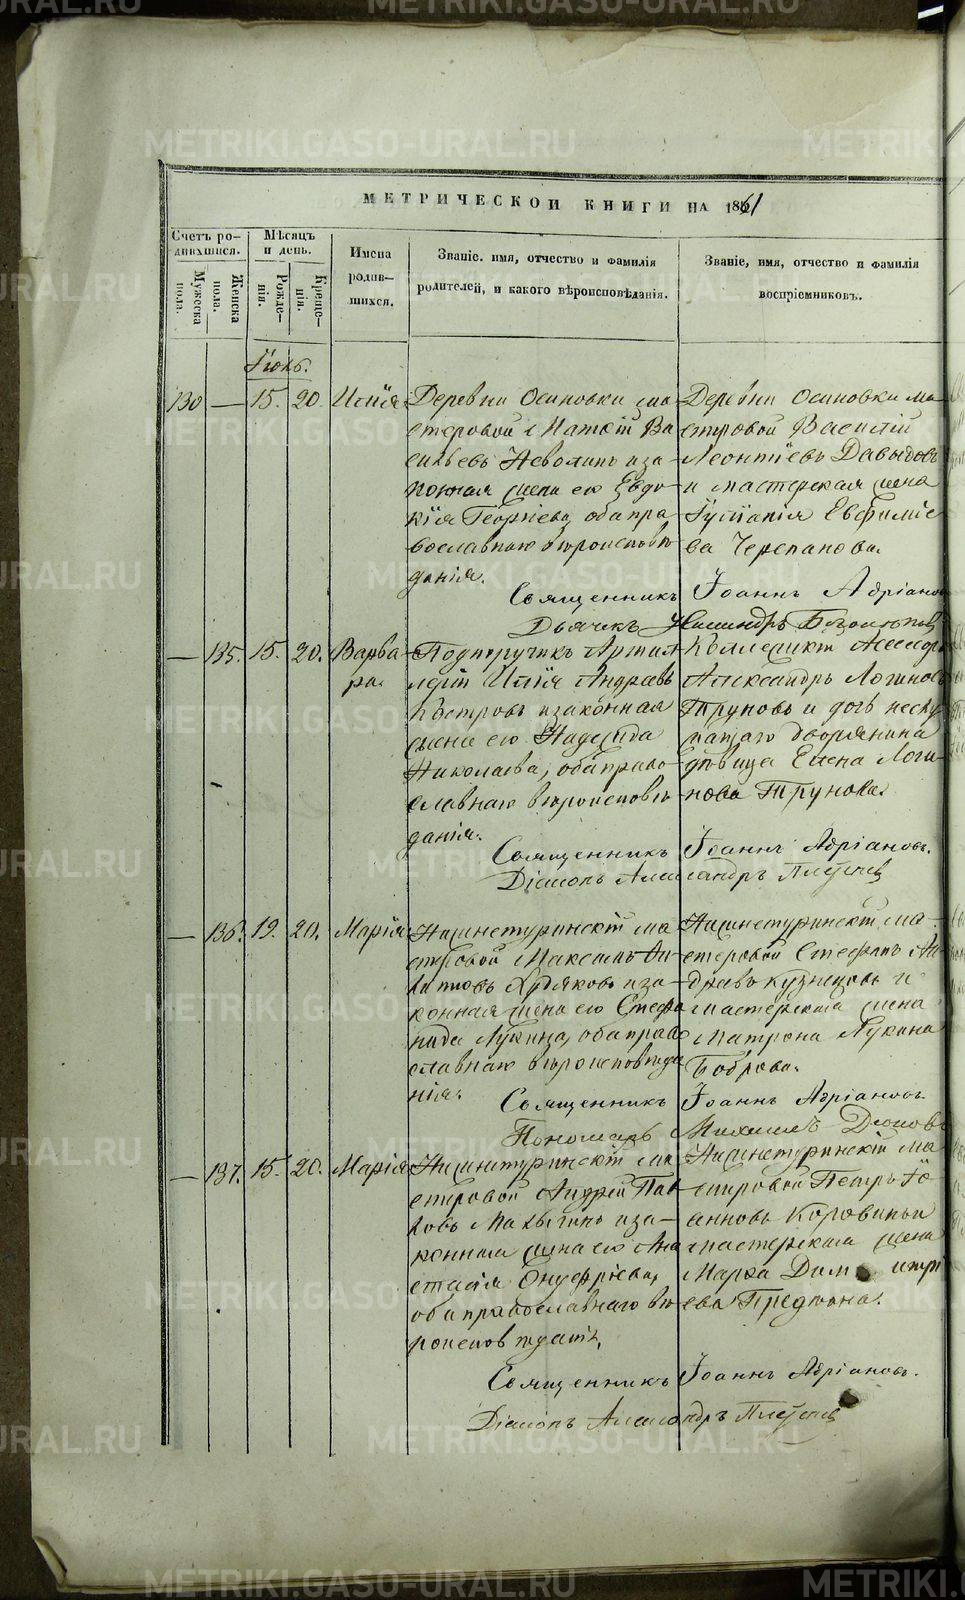 МЕТРИЧЕСКОИ КНИГИ НА 1861
Счетъ ро-
дившихся.
Мѣсяцъ
и день.
Мужеска
пола.
Женска
пола.
Рожде-
нія.
Креще-
нія.
Имена
родив-
шихся.
Званіе. имя, отчество и фамилія
родителей, и какого вѣроисповѣданія.
Званіе, имя, отчество и фамилія
воспріемниковъ.
130 — 15. 20. Илія
Деревни Осиновки ма-
стеровой Матѳій Ва
сильевъ Неволинъ и за
конная жена его Евдо
кія Георгіева, оба пра
вославнаго вѣроисповѣ
данія.
Деревни Осиновки ма-
стеровой Василій
Леонтіевъ Давыдовъ
и мастерская жена
Іуліанія Евфиміе
ва Черепанова.
Священникъ Іоаннъ Адріановъ
Дьячекъ
— 135. 15. 20. Варва-
ра.
Подпоручикъ Артил
леріи Илія Андреевъ
Костровъ и законная
жена его Надежда
Николаева, оба право
славнаго вѣроисповѣ
данія.
Коллежскій Ассесоръ
Александръ Логиновъ
Труновъ и дочь неслу
жащаго дворянина
дѣвица Елена Логи-
нова Трунова.
Священникъ Іоаннъ Адріановъ.
Діаконъ Александръ
— 136. 19. 20. Марія
Нижнетуринскій ма
стеровой Максимъ
и за-
конная жена его Стефа
нида Лукина, оба право
славнаго вѣроисповѣда
нія.
Нижнетуринскій ма-
стеровой Стефанъ Ан
дреевъ Кузнецовъ и
мастерская жена
Матрона Лукина
Боброва.
Священникъ Іоаннъ Адріановъ
Пономарь Михаилъ
— 137. 15. 20. Марія
Нижнетуринскій ма
стеровой Андрей Пав
ловъ и за-
конная жена его Ана
стасія Онуфріева,
оба православнаго вѣ
роисповѣданія.
Нижнетуринскій ма
стеровой Петръ Іо
анновъ Коровинъ и
мастерская жена
Марѳа Дим итрі
ева
Священникъ Іоаннъ Адріановъ.
Діаконъ Александръ
METRIKI.GASO-URAL.RU